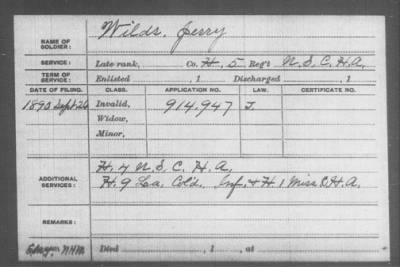 NAME OF SOLDIER: Wilds, Jerry
SERVICE: Late rank, Co. H, 5 Reg't U.S.C.H.A.
TERM OF SERVICE: Enlisted , 1 Discharged , 1
DATE OF FILING. CLASS. APPLICATION NO. LAW. CERTIFICATE NO.
1890 Sept 26 Invalid, 914.947 J.
Widow,
Minor,
ADDITIONAL SERVICES: H. 4 U.S.C.H.A.
H. 9 La. Col'd. Inf. & H 1 Miss C.H.A.
REMARKS:
Died , 1 at